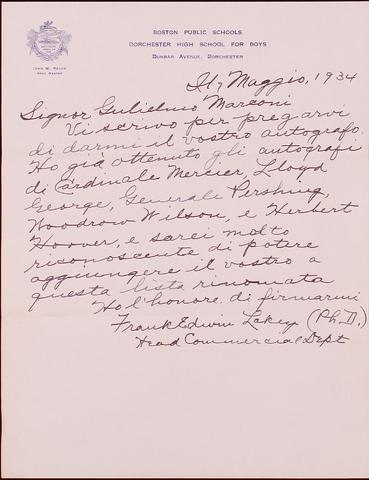 BOSTON PUBLIC SCHOOLS
DORCHESTER HIGH SCHOOL FOR BOYS
DUNBAR AVENUE, DORCHESTER
Il 7 Maggio, 1934
Signor Gulielmo Marconi
Vi scrivo per pregarvi
di darmi il vostro autografo.
Ho già ottenuto gli autografi
di Cardinale Mercier, Lloyd
George, Generale Pershing,
Woodrow Wilson, e Herbert
Hoover, e sarei molto
riconoscente di potere
aggiungere il vostro a
questa lista rinomata
Ho l'honore di firmarmi
Frank Edwin Lakey (Ph.D.)
Head Commercial Dept